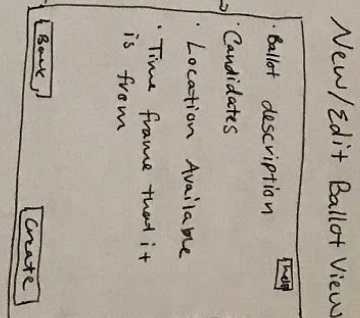 New/Edit Ballot View
help
· Ballot description
· Candidates
· Location Available
· Time frame that it
is from
Back
Create